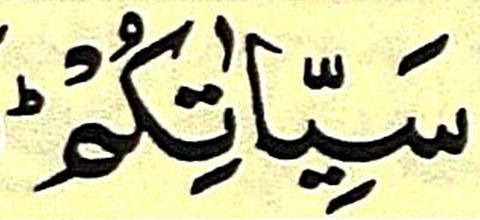 سَيِّاٰتِكُمْ ؕ